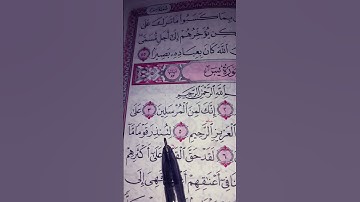 بِمَا كَسَبُوا۟ مَا تَرَكَ عَلَىٰ
كِن يُؤَخِّرُهُمْ إِلَىٰٓ أَجَلٍ مُّسَمًّى
ٱللَّهَ كَانَ بِعِبَادِهِۦ بَصِيرًۢا
سُورَةُ يسٓ
ٱللَّهِ ٱلرَّحْمَٰنِ ٱلرَّحِيمِ
إِنَّكَ لَمِنَ ٱلْمُرْسَلِينَ ٣ عَلَىٰ
ٱلْعَزِيزِ ٱلرَّحِيمِ ٥ لِتُنذِرَ قَوْمًا مَّآ
٦ لَقَدْ حَقَّ ٱلْقَوْلُ عَلَىٰٓ أَكْثَرِهِمْ
فِىٓ أَعْنَٰقِهِمْ فَهِىَ إِلَى